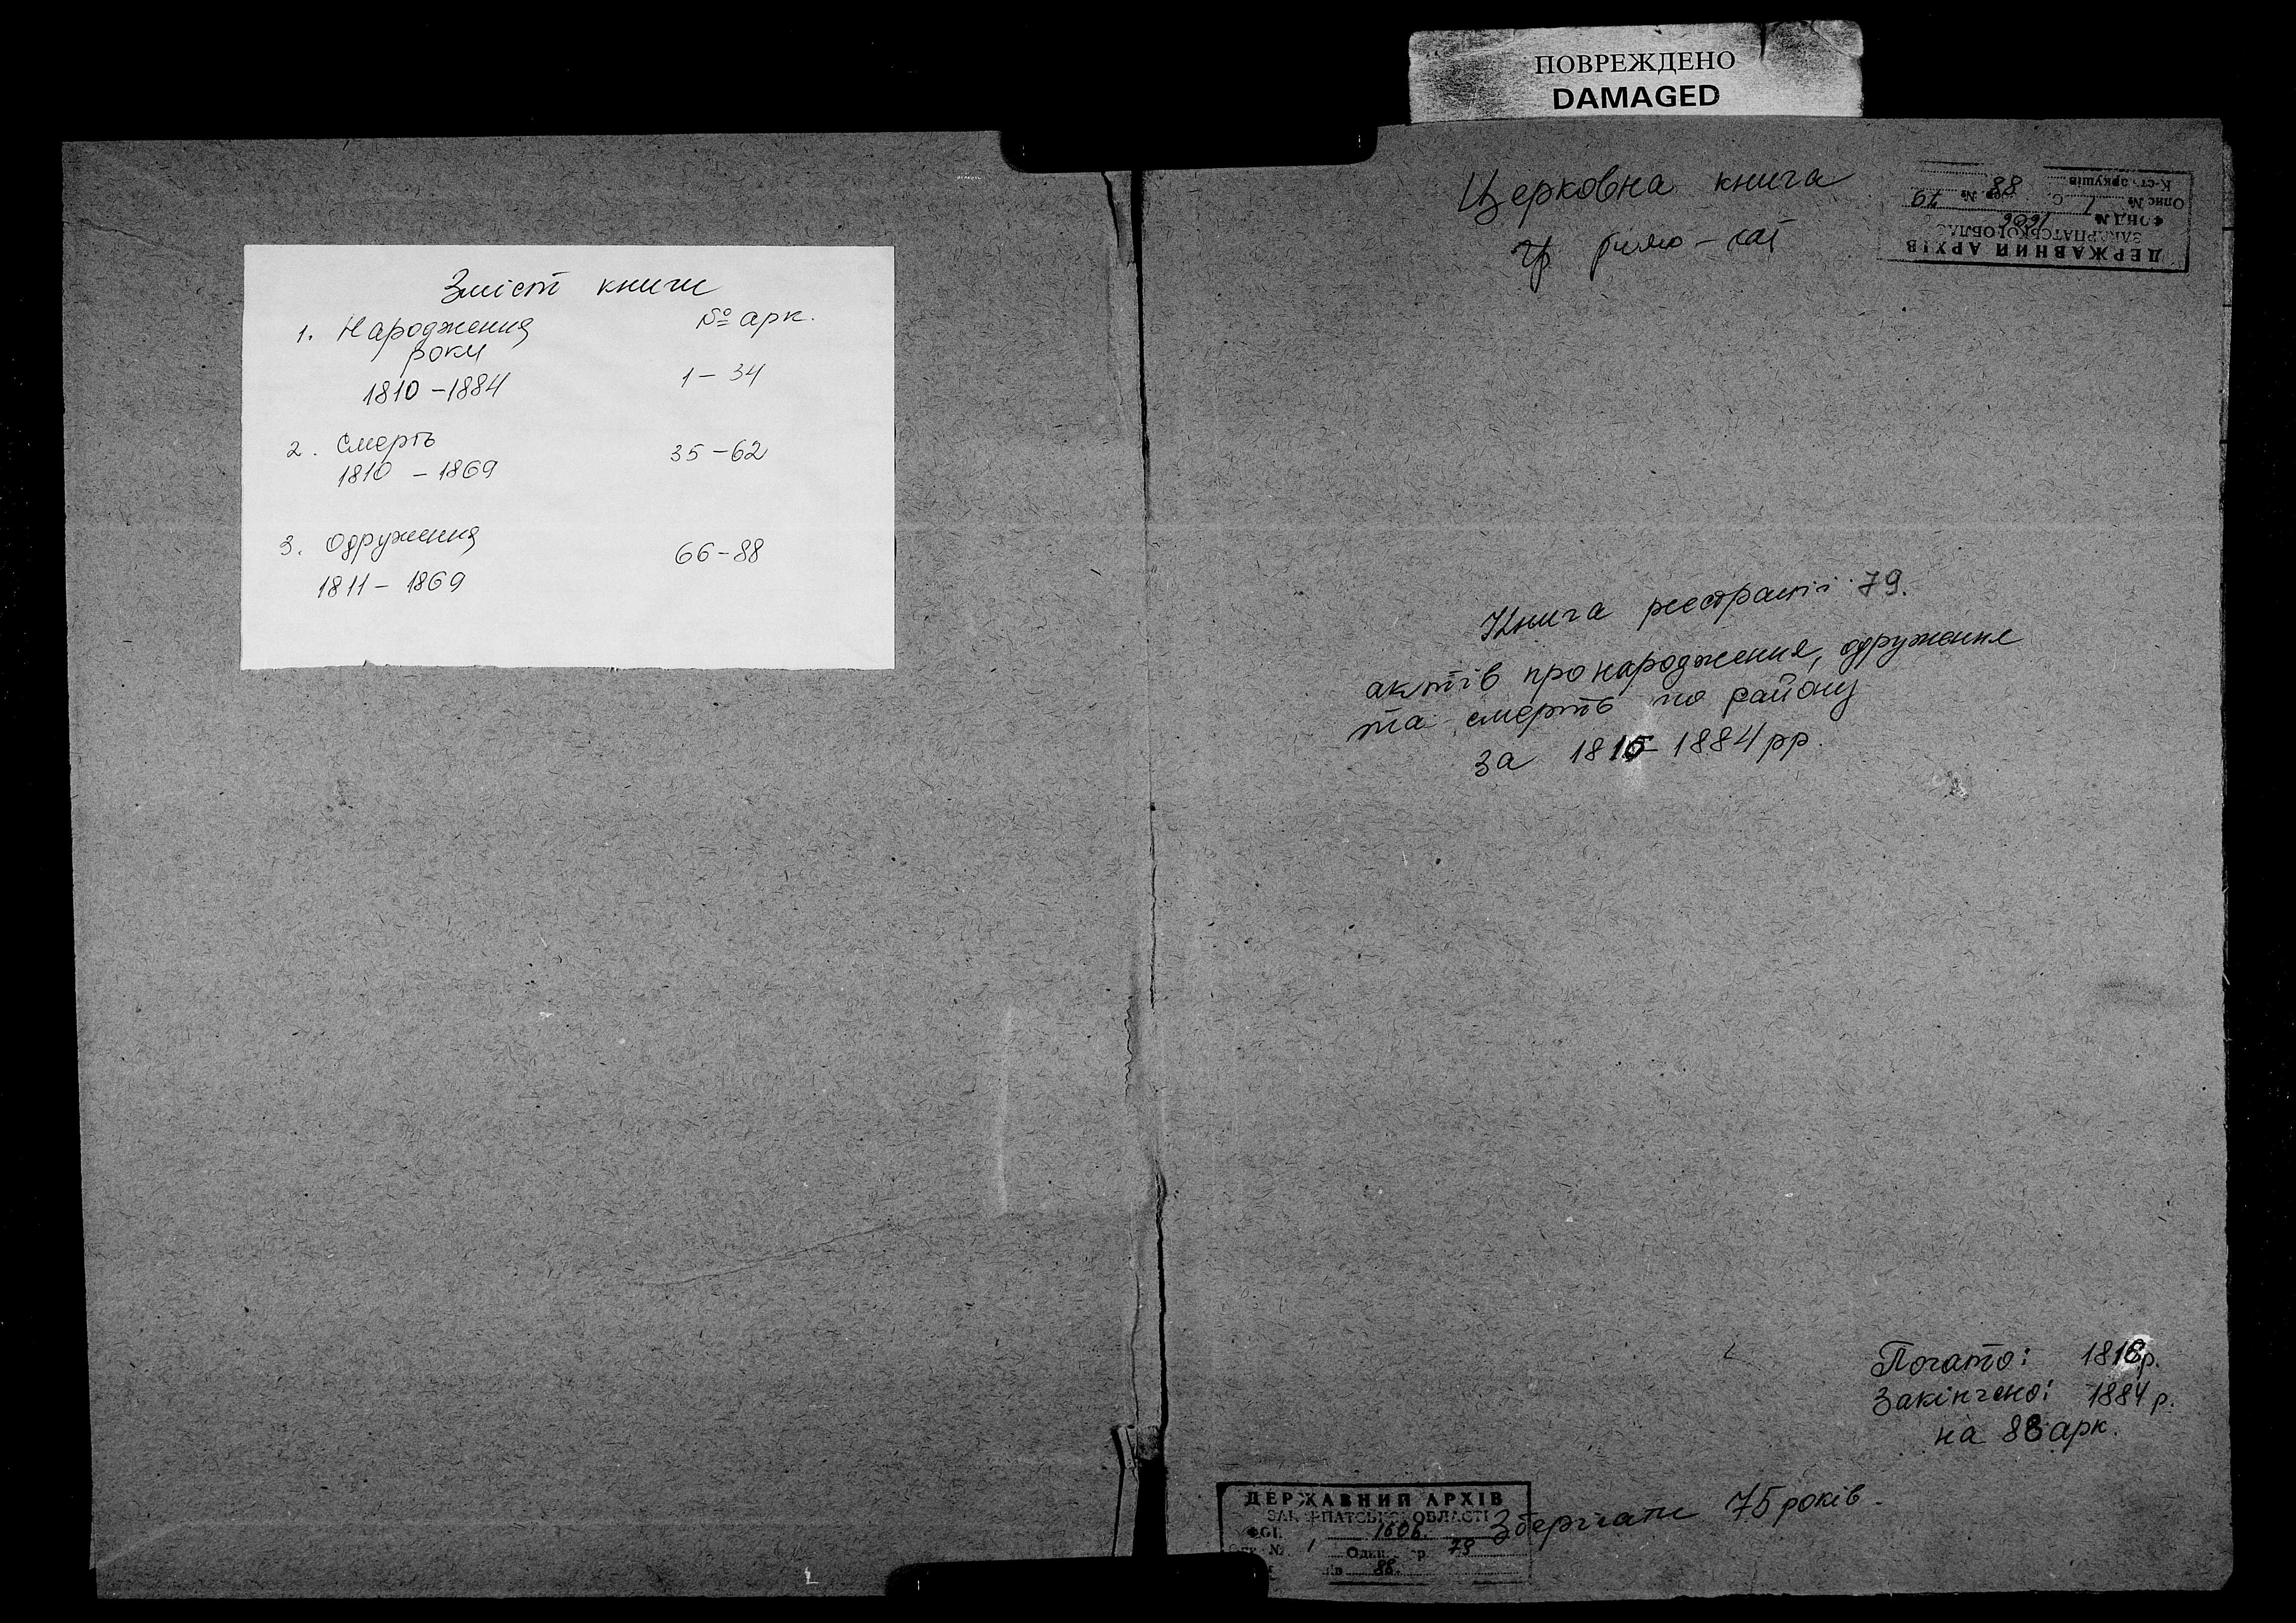 ПОВРЕЖДЕНО
DAMAGED
Зміст книги
№ арк.
1. Народження
роки
1810 – 1884
1 – 34
2. Смерть
1810 – 1869
35 – 62
3. Одруження
1811 – 1869
66 – 88
Церковна книга
римо – кат
ДЕРЖАВНИЙ АРХІВ
ЗАКАРПАТСЬКОЇ ОБЛАС
ФОНД № 1606
Опис № 1 Од. зер. № 79
К-сть аркушів 88
Книга реєстрації 79.
актів про народження, одруження
та смерть по району
за 1810 – 1884 рр.
Почато: 1810 р.
Закінчено: 1884 р.
на 88 арк.
Зберігати 75 років.
ДЕРЖАВНИЙ АРХІВ
ЗАКАРПАТСЬКОЇ ОБЛАСТІ
ФОН 1606.
№ 1 Один. зр. 79
ів 88.